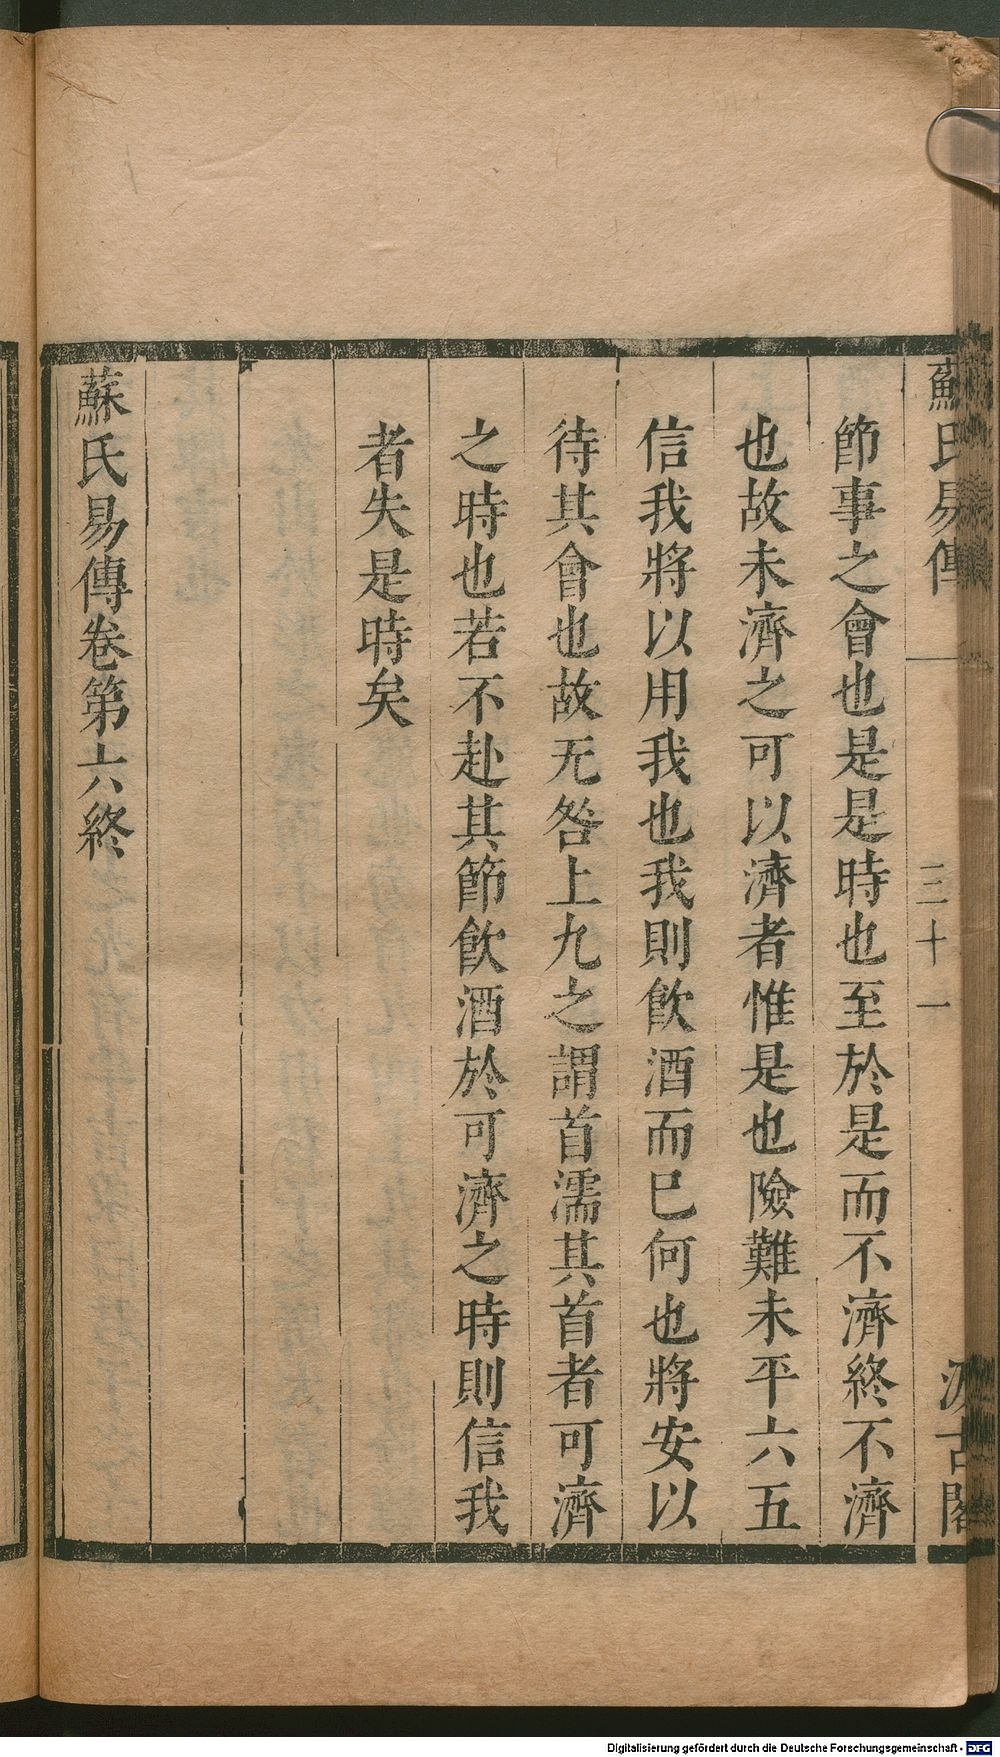 蘇氏易傳 三十一 汲古閣
節事之會也是是時也至於是而不濟終不濟
也故未濟之可以濟者惟是也險難未平六五
信我將以用我也我則飲酒而巳何也將安以
待其會也故无咎上九之謂首濡其首者可濟
之時也若不赴其節飲酒於可濟之時則信我
者失是時矣
蘇氏易傳卷第六終
Digitalisierung gefördert durch die Deutsche Forschungsgemeinschaft - DFG